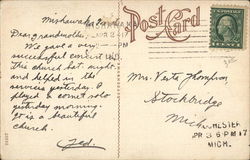 Mishawaka Ind.
Dear grandmother,
We gave a very
successful concert in
this church last night
and helped in the
services yesterday. I
played a cornet solo
yesterday morning.
It is a beautiful
church.
Ted.
Post Card
Mrs. Vesta Thompson
Stockbridge
Mich
CHESTER
APR 3 6 PM 17
MICH.